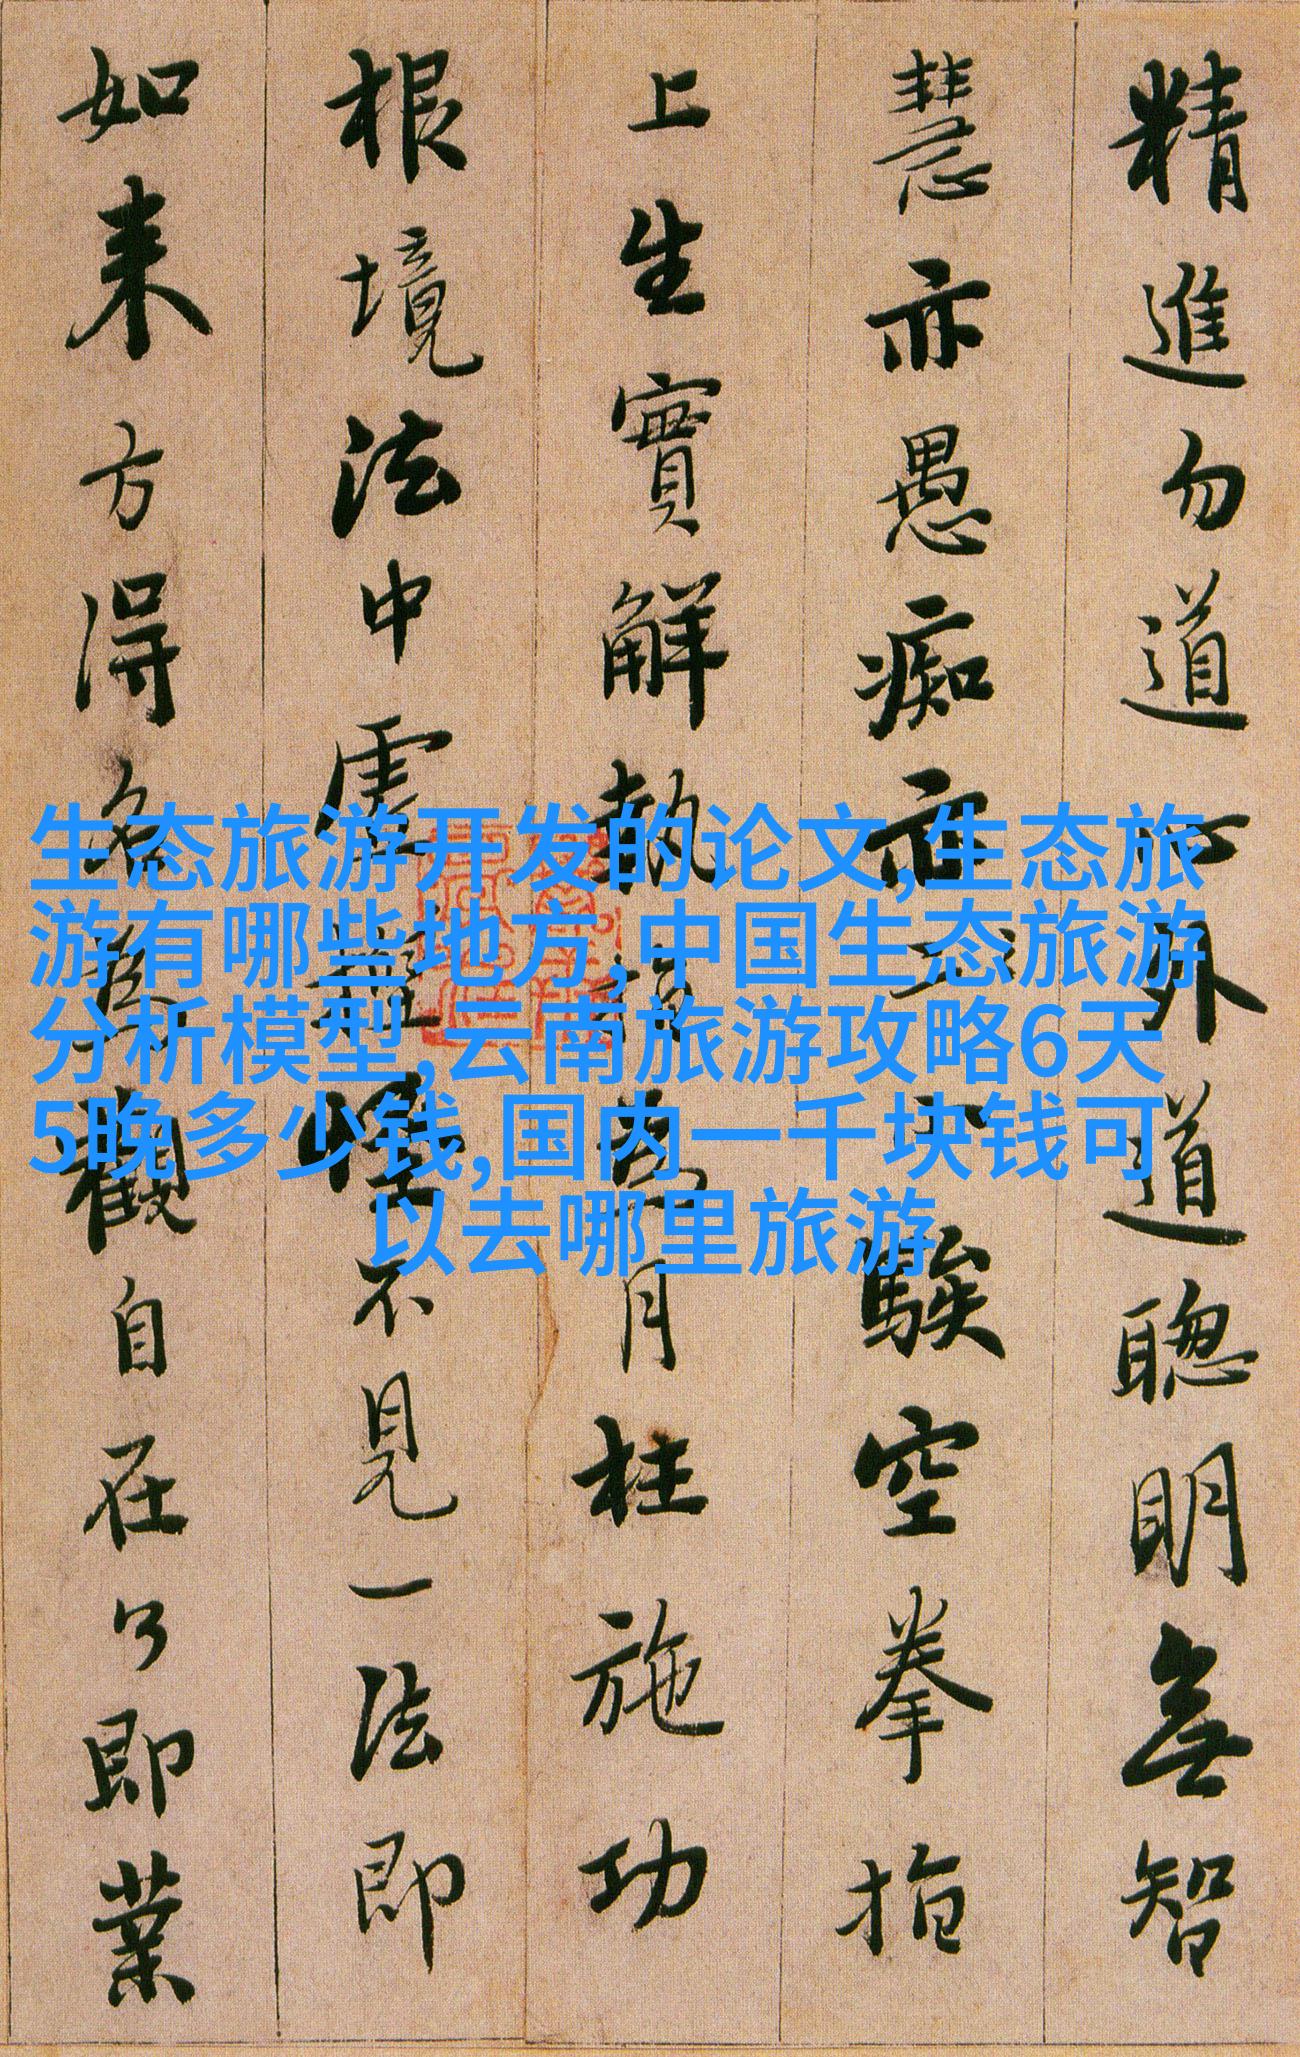 精進勿道心外道聰明無智
慧亦愚痴亦小騃空拳指
上生實解執指為月枉施功
根境法中虛捏怪不見一法即
如来方得名為觀自在了即業
生态旅游开发的论文,生态旅
游有哪些地方,中国生态旅游
分析模型,云南旅游攻略6天
5晚多少钱,国内一千块钱可
以去哪里旅游